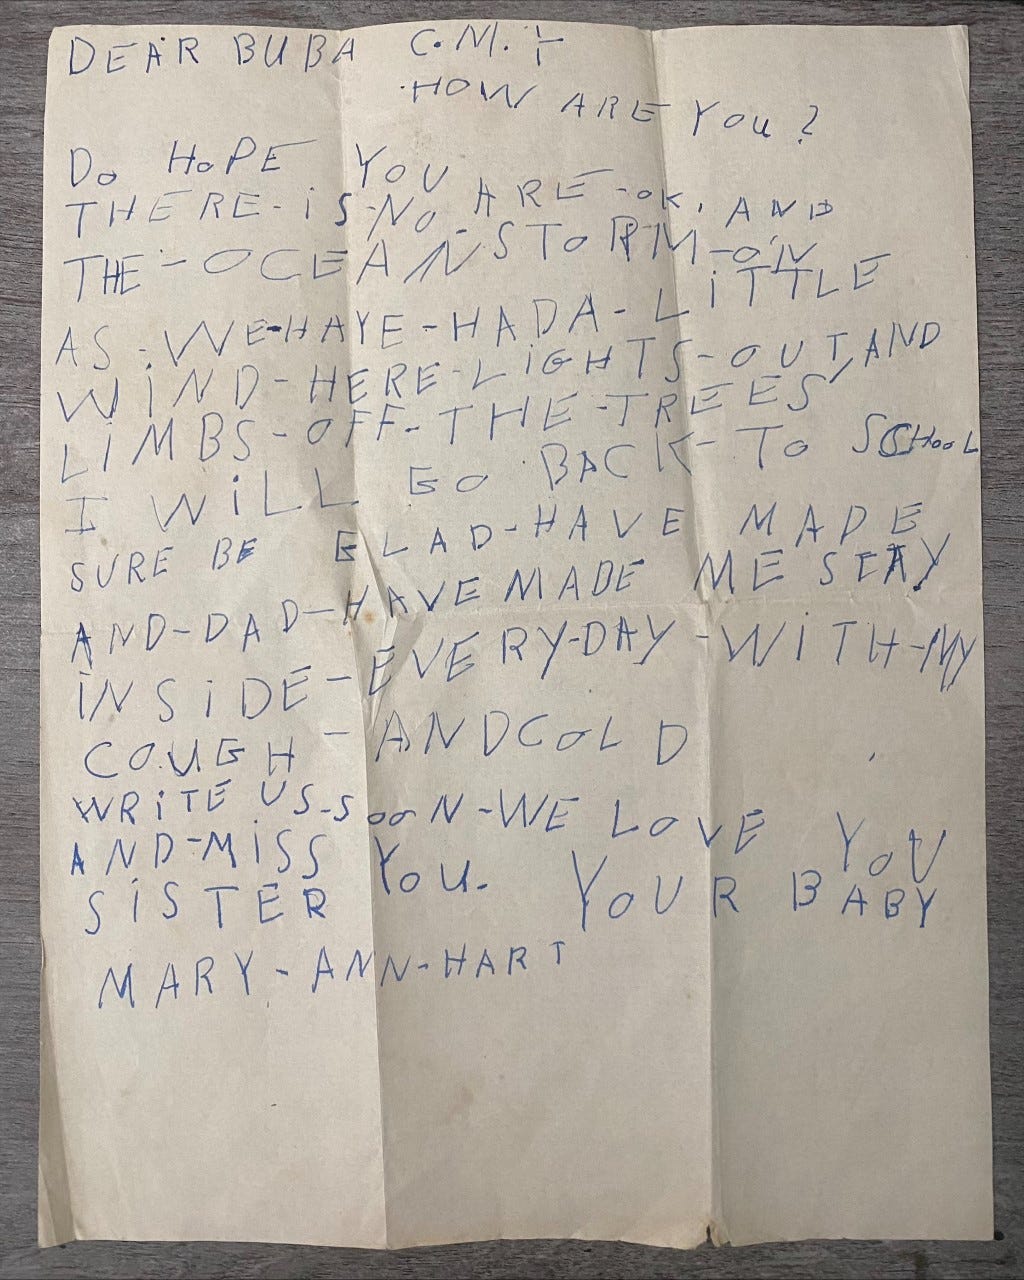 DEAR BUBA C.M.
HOW ARE YOU?
DO HOPE YOU ARE-OK, AND
THERE-iS-NO-STORM-ON
THE-OCEAN
AS-WE-HAVE-HADA-LiTTLE
WiND-HERE-LiGHTS-OUT, AND
LiMBS-OFF-THE-TREES,
I WiLL GO BACK-TO SCHOOL
SURE BE GLAD-HAVE MADE
AND-DAD-HAVE MADE ME STAY
iNSiDE-EVERY-DAY-WiTH-MY
COUGH-ANDCOLD
WRiTE US-SOON-WE LOVE YOU
AND-MiSS YOU. YOUR BABY
SiSTER
MARY-ANN-HART